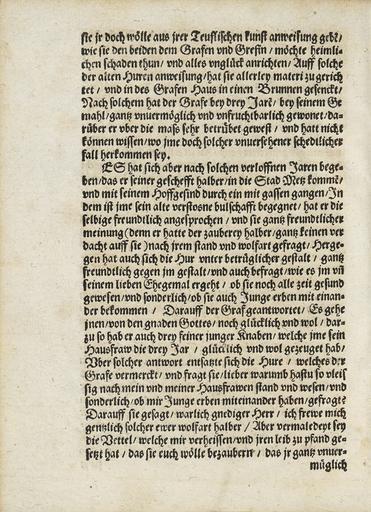 sie jr doch wölle aus jrer Teuflischen kunst anweisung gebẽ/
wie sie den beiden dem Grafen vnd Grefin / möchte heimli-
chen schaden thun/ vnd alles vnglück anrichten/ Auff solche
der alten Huren anweisung/hat sie allerley materi zu gerich
tet / vnd in des Grafen Haus in einen Brunnen gesenckt/
Nach solchem hat der Grafe bey drey Jarẽ/ bey seinem Ge
mahl/gantz vnuermöglich vnd vnfruchtbarlich gewonet/da-
rüber er vber die maß sehr betrübet gewest / vnd hatt nicht
können wissen/wo jme doch solcher vnuersehener schedtlicher
fall herkommen sey.
ES hat sich aber nach solchen verloffnen Jaren bege-
ben/das er seiner gescheft halber/in die Stad Metz kommẽ/
vnd mit seinem Hoffgesind durch ein mit gassen gangen/In
dem ist jme sein alte verstosne bulschafft begegnet/ hat er die
selbige freundtlich angesprochen / vnd sie gantz freundtlicher
meinung (denn er hatte der zauberey halber/gantz keinen ver
dacht auff sie )nach jrem stand vnd wolfart gefragt/ Herge-
gen hat auch sich die Hur vnter betrüglicher gestalt / gantz
freundtlich gegen jm gestalt/vnd auch befragt/wie es jm vñ
seinem lieben Ehegemal ergeht / ob sie noch alle zeit gesund
gewesen/vnd sonderlich/ob sie auch Junge erben mit einan-
der bekommen / Darauff der Graf geantwortet/ Es gehe
jnen/von den gnaden Gottes/ noch glücklich vnd wol / dar-
zu so hab er auch drey feiner junger Knaben/ welche jme sein
Hausfraw die drey Jar / glücklich vnd wol gezeuget hab/
Vber solcher antwort entsatzte sich die Hure / welches der
Grafe vermerckt/ vnd fragt sie/lieber warumb hastu so vleis
sig nach mein vnd meiner Hausfrawen stand vnd wesen/vnd
sonderlich/ob mir Junge erben miteinander haben/gefragt?
Darauff sie gesagt/ warlich gnediger Herr / ich frewe mich
gentzlich solcher ewer wolfart halber / Aber vermaledeyt sey
die Vettel/ welche mir verheissen/vnd jren leib zu pfand ge-
setzt hat / das sie euch wölle bezaubern/ das jr gantz vnuer-
müglich